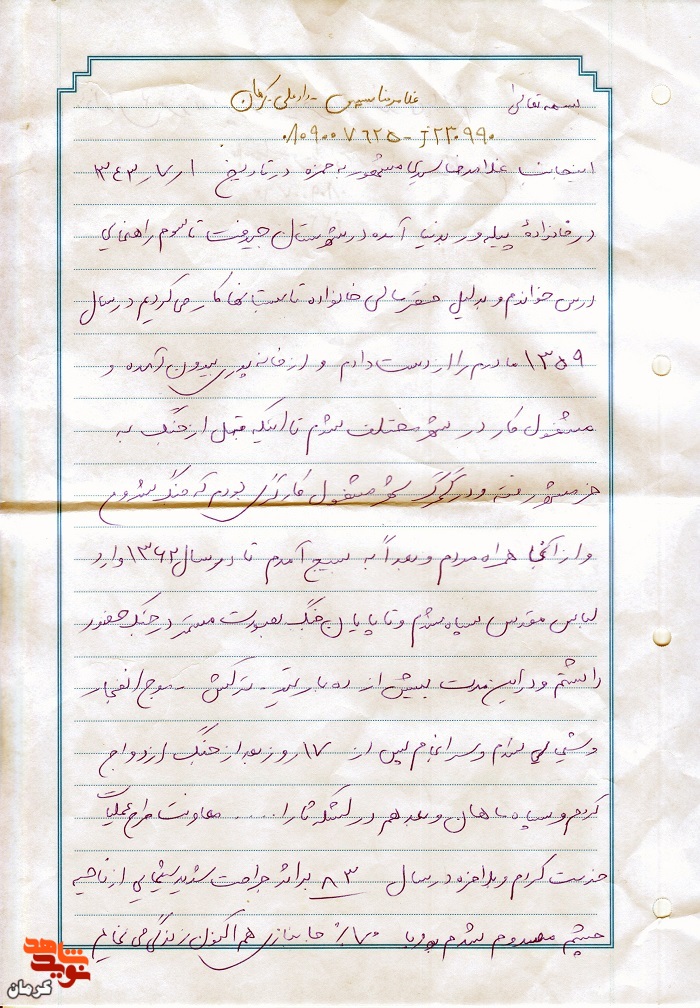 بسمه تعالی غلامرضا - دادعلی کرمان
۰۸۰۹۰۰۷۶۲۵ - ۲۲۰۹۹۰
اینجانب غلامرضا مشهور به حمزه در تاریخ ۱ر۷ر۳۴۳
در خانوادهٔ پیله ور بدنیا آمده در شهرستان جیرفت تا سوم راهنمایی
درس خواندم و بدلیل فقر مالی خانواده تابستانها کار می کردیم در سال
۱۳۵۹ مادرم را از دست دادم و از خانه پدری بیرون آمده و
مشغول کار در شهر مختلف شدم تا اینکه قبل از جنگ به
خرمشهر رفته و در گمرک شهر مشغول کارگری بودم که جنگ شروع
و از آنجا همراه مردم و بعداً به بسیج آمدم تا در سال ۱۳۶۲ وارد
لباس مقدس سپاه شدم و تا پایان جنگ بصورت مستمر در جنگ حضور
داشتم و در این مدت بیش از ده بار تیر - ترکش - موج انفجار
و شیمیایی شدم و سرانجام پس از ۱۷ روز بعد از جنگ ازدواج
کردم و سپاه ماهان و بعد هم در لشکر ثارا.... معاونت طرح عملیات
خدمت کردم و بلاخره در سال ۸۳ براثر جراحت شدید شیمیایی از ناحیه
چشم مصدوم شدم و با ۷۰٪ جانبازی هم اکنون زندگی می نمایم
نوید شاهد
کرمان